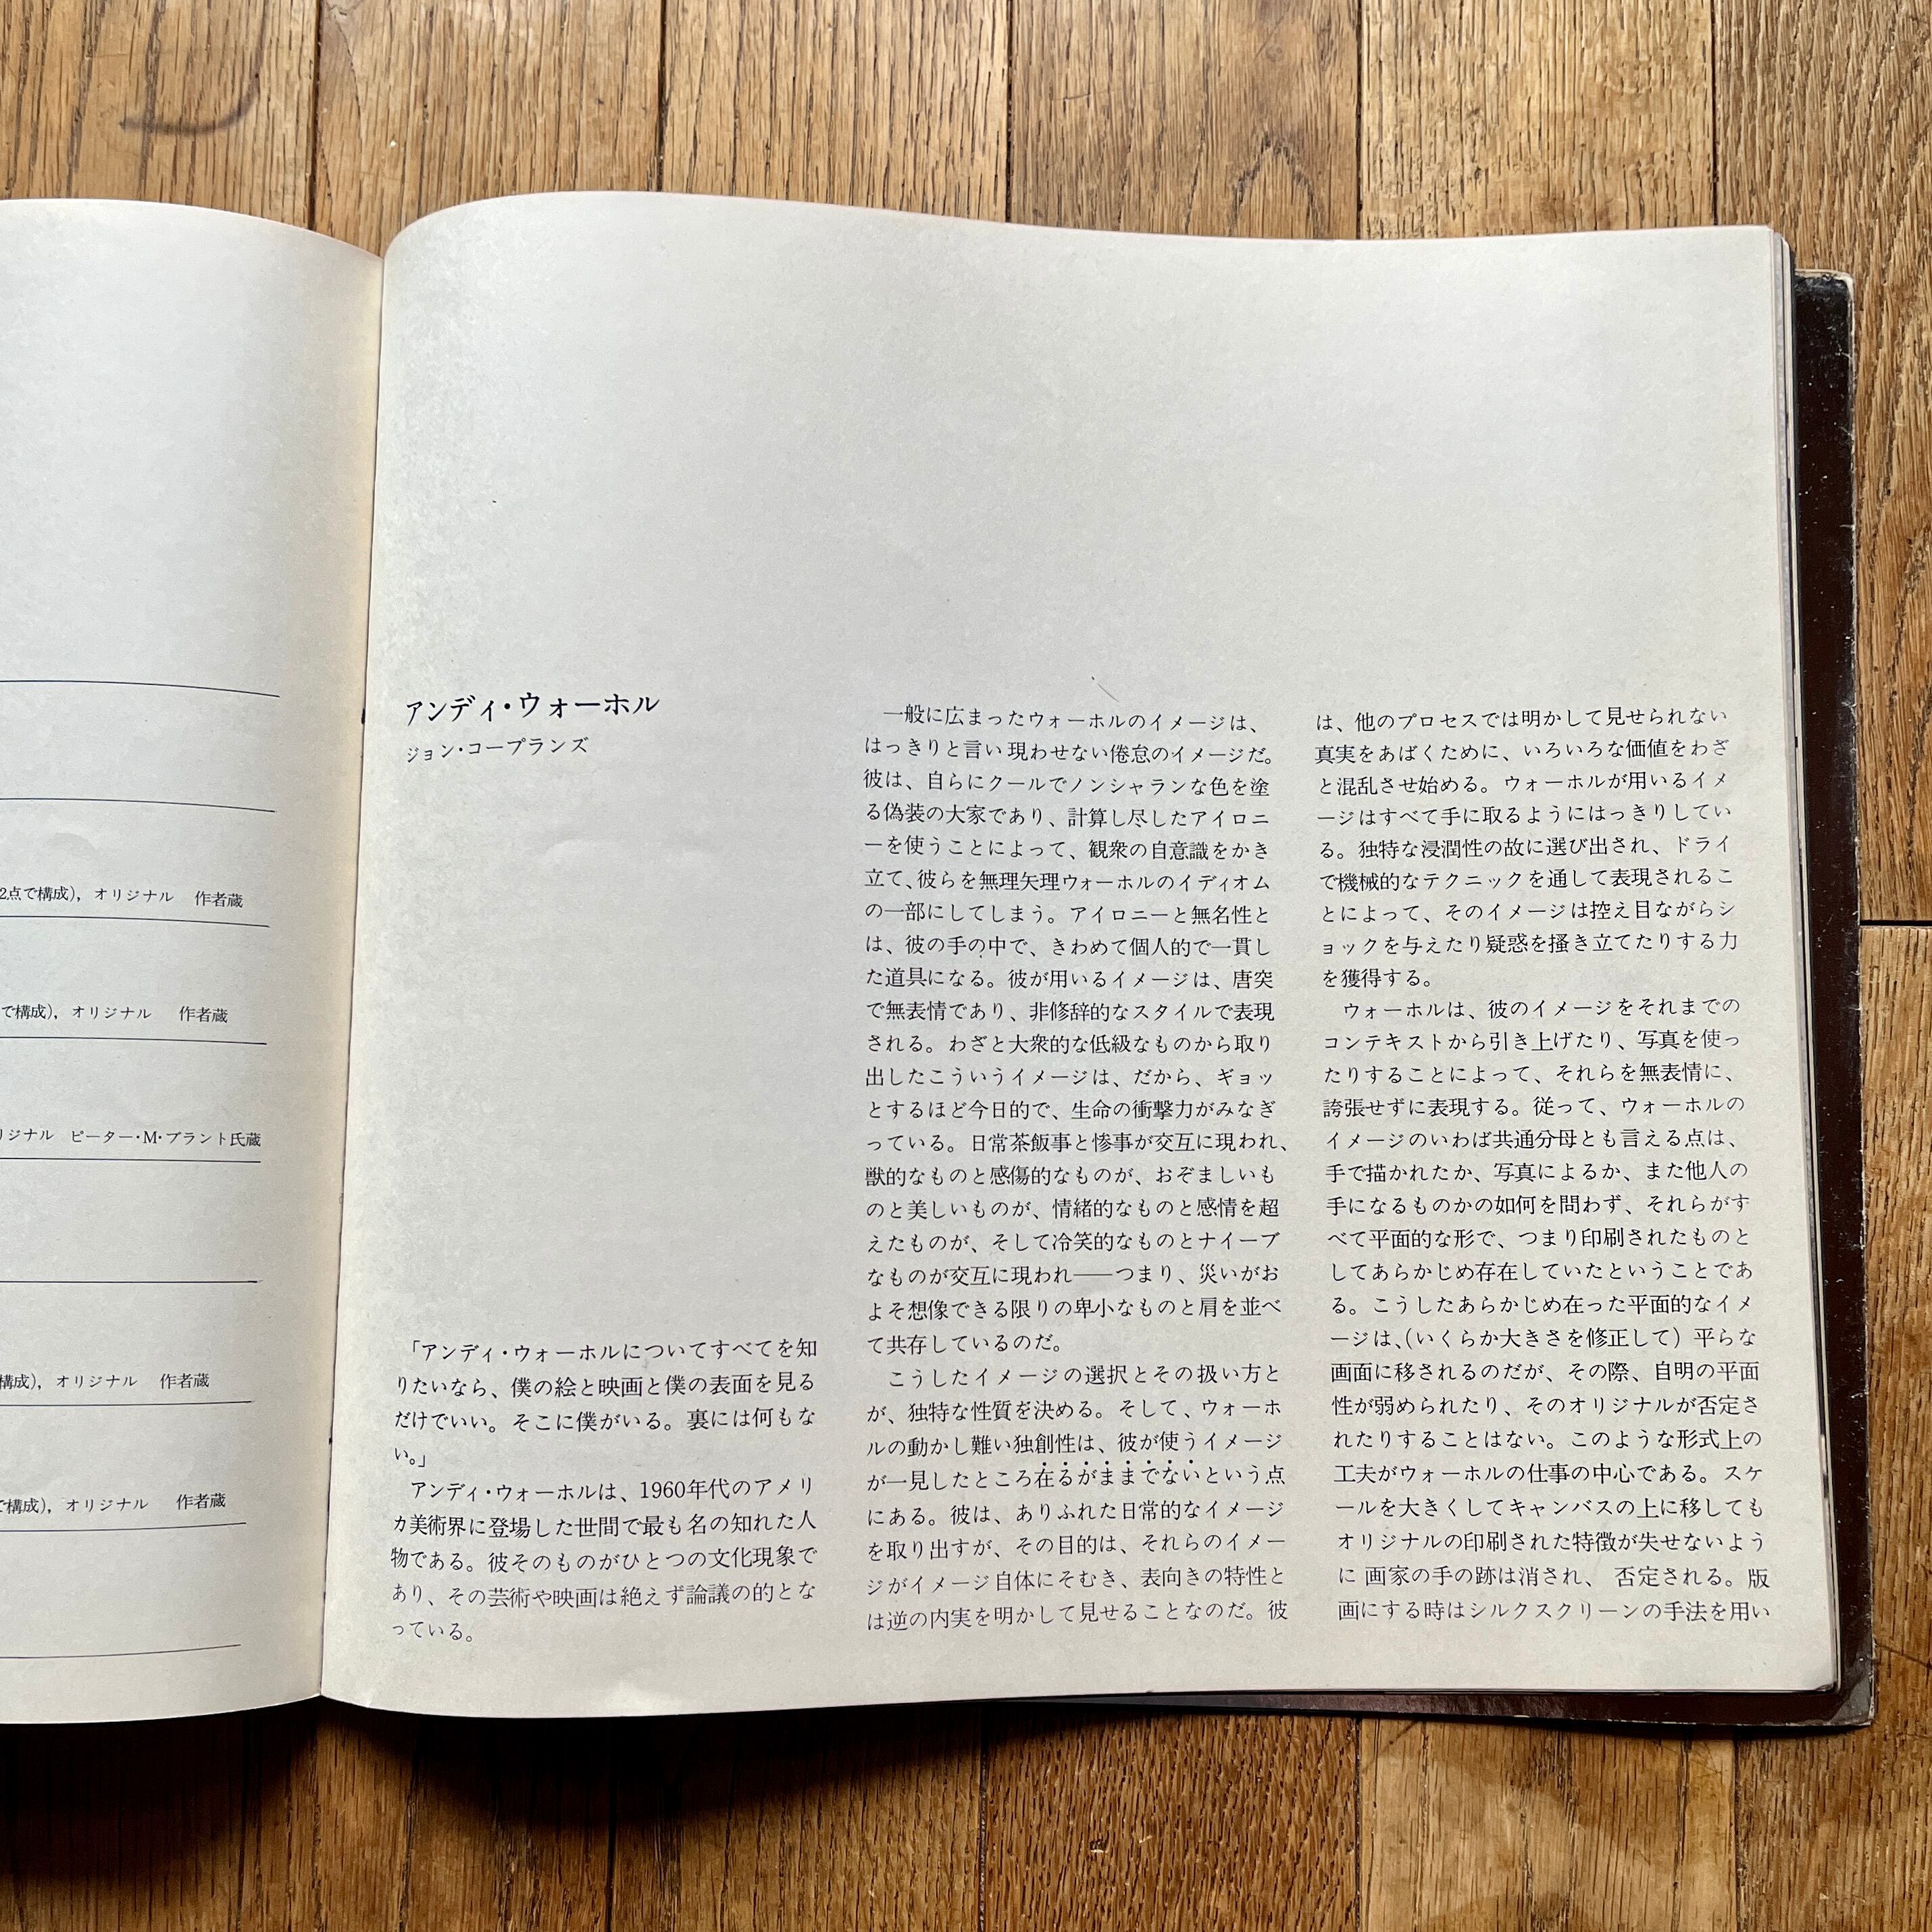 2点で構成)，オリジナル　作者蔵
で構成)，オリジナル　作者蔵
リジナル　ピーター・M・ブラント氏蔵
構成)，オリジナル　作者蔵
で構成)，オリジナル　作者蔵
アンディ・ウォーホル
ジョン・コープランズ
「アンディ・ウォーホルについてすべてを知
りたいなら、僕の絵と映画と僕の表面を見る
だけでいい。そこに僕がいる。裏には何もな
い。」
アンディ・ウォーホルは、1960年代のアメリ
カ美術界に登場した世間で最も名の知れた人
物である。彼そのものがひとつの文化現象で
あり、その芸術や映画は絶えず論議の的とな
っている。
一般に広まったウォーホルのイメージは、
はっきりと言い現わせない倦怠のイメージだ。
彼は、自らにクールでノンシャランな色を塗
る偽装の大家であり、計算し尽したアイロニ
ーを使うことによって、観衆の自意識をかき
立て、彼らを無理矢理ウォーホルのイディオム
の一部にしてしまう。アイロニーと無名性と
は、彼の手の中で、きわめて個人的で一貫し
た道具になる。彼が用いるイメージは、唐突
で無表情であり、非修辞的なスタイルで表現
される。わざと大衆的な低級なものから取り
出したこういうイメージは、だから、ギョッ
とするほど今日的で、生命の衝撃力がみなぎ
っている。日常茶飯事と惨事が交互に現われ、
獣的なものと感傷的なものが、おぞましいも
のと美しいものが、情緒的なものと感情を超
えたものが、そして冷笑的なものとナイーブ
なものが交互に現われ——つまり、災いがお
よそ想像できる限りの卑小なものと肩を並べ
て共存しているのだ。
こうしたイメージの選択とその扱い方と
が、独特な性質を決める。そして、ウォーホ
ルの動かし難い独創性は、彼が使うイメージ
が一見したところ在るがままでないという点
にある。彼は、ありふれた日常的なイメージ
を取り出すが、その目的は、それらのイメー
ジがイメージ自体にそむき、表向きの特性と
は逆の内実を明かして見せることなのだ。彼
は、他のプロセスでは明かして見せられない
真実をあばくために、いろいろな価値をわざ
と混乱させ始める。ウォーホルが用いるイメ
ージはすべて手に取るようにはっきりしてい
る。独特な浸潤性の故に選び出され、ドライ
で機械的なテクニックを通して表現されるこ
とによって、そのイメージは控え目ながらシ
ョックを与えたり疑惑を掻き立てたりする力
を獲得する。
ウォーホルは、彼のイメージをそれまでの
コンテキストから引き上げたり、写真を使っ
たりすることによって、それらを無表情に、
誇張せずに表現する。従って、ウォーホルの
イメージのいわば共通分母とも言える点は、
手で描かれたか、写真によるか、また他人の
手になるものかの如何を問わず、それらがす
べて平面的な形で、つまり印刷されたものと
してあらかじめ存在していたということであ
る。こうしたあらかじめ在った平面的なイメ
ージは、(いくらか大きさを修正して）平らな
画面に移されるのだが、その際、自明の平面
性が弱められたり、そのオリジナルが否定さ
れたりすることはない。このような形式上の
工夫がウォーホルの仕事の中心である。スケ
ールを大きくしてキャンバスの上に移しても
オリジナルの印刷された特徴が失せないよう
に 画家の手の跡は消され、 否定される。版
画にする時はシルクスクリーンの手法を用い